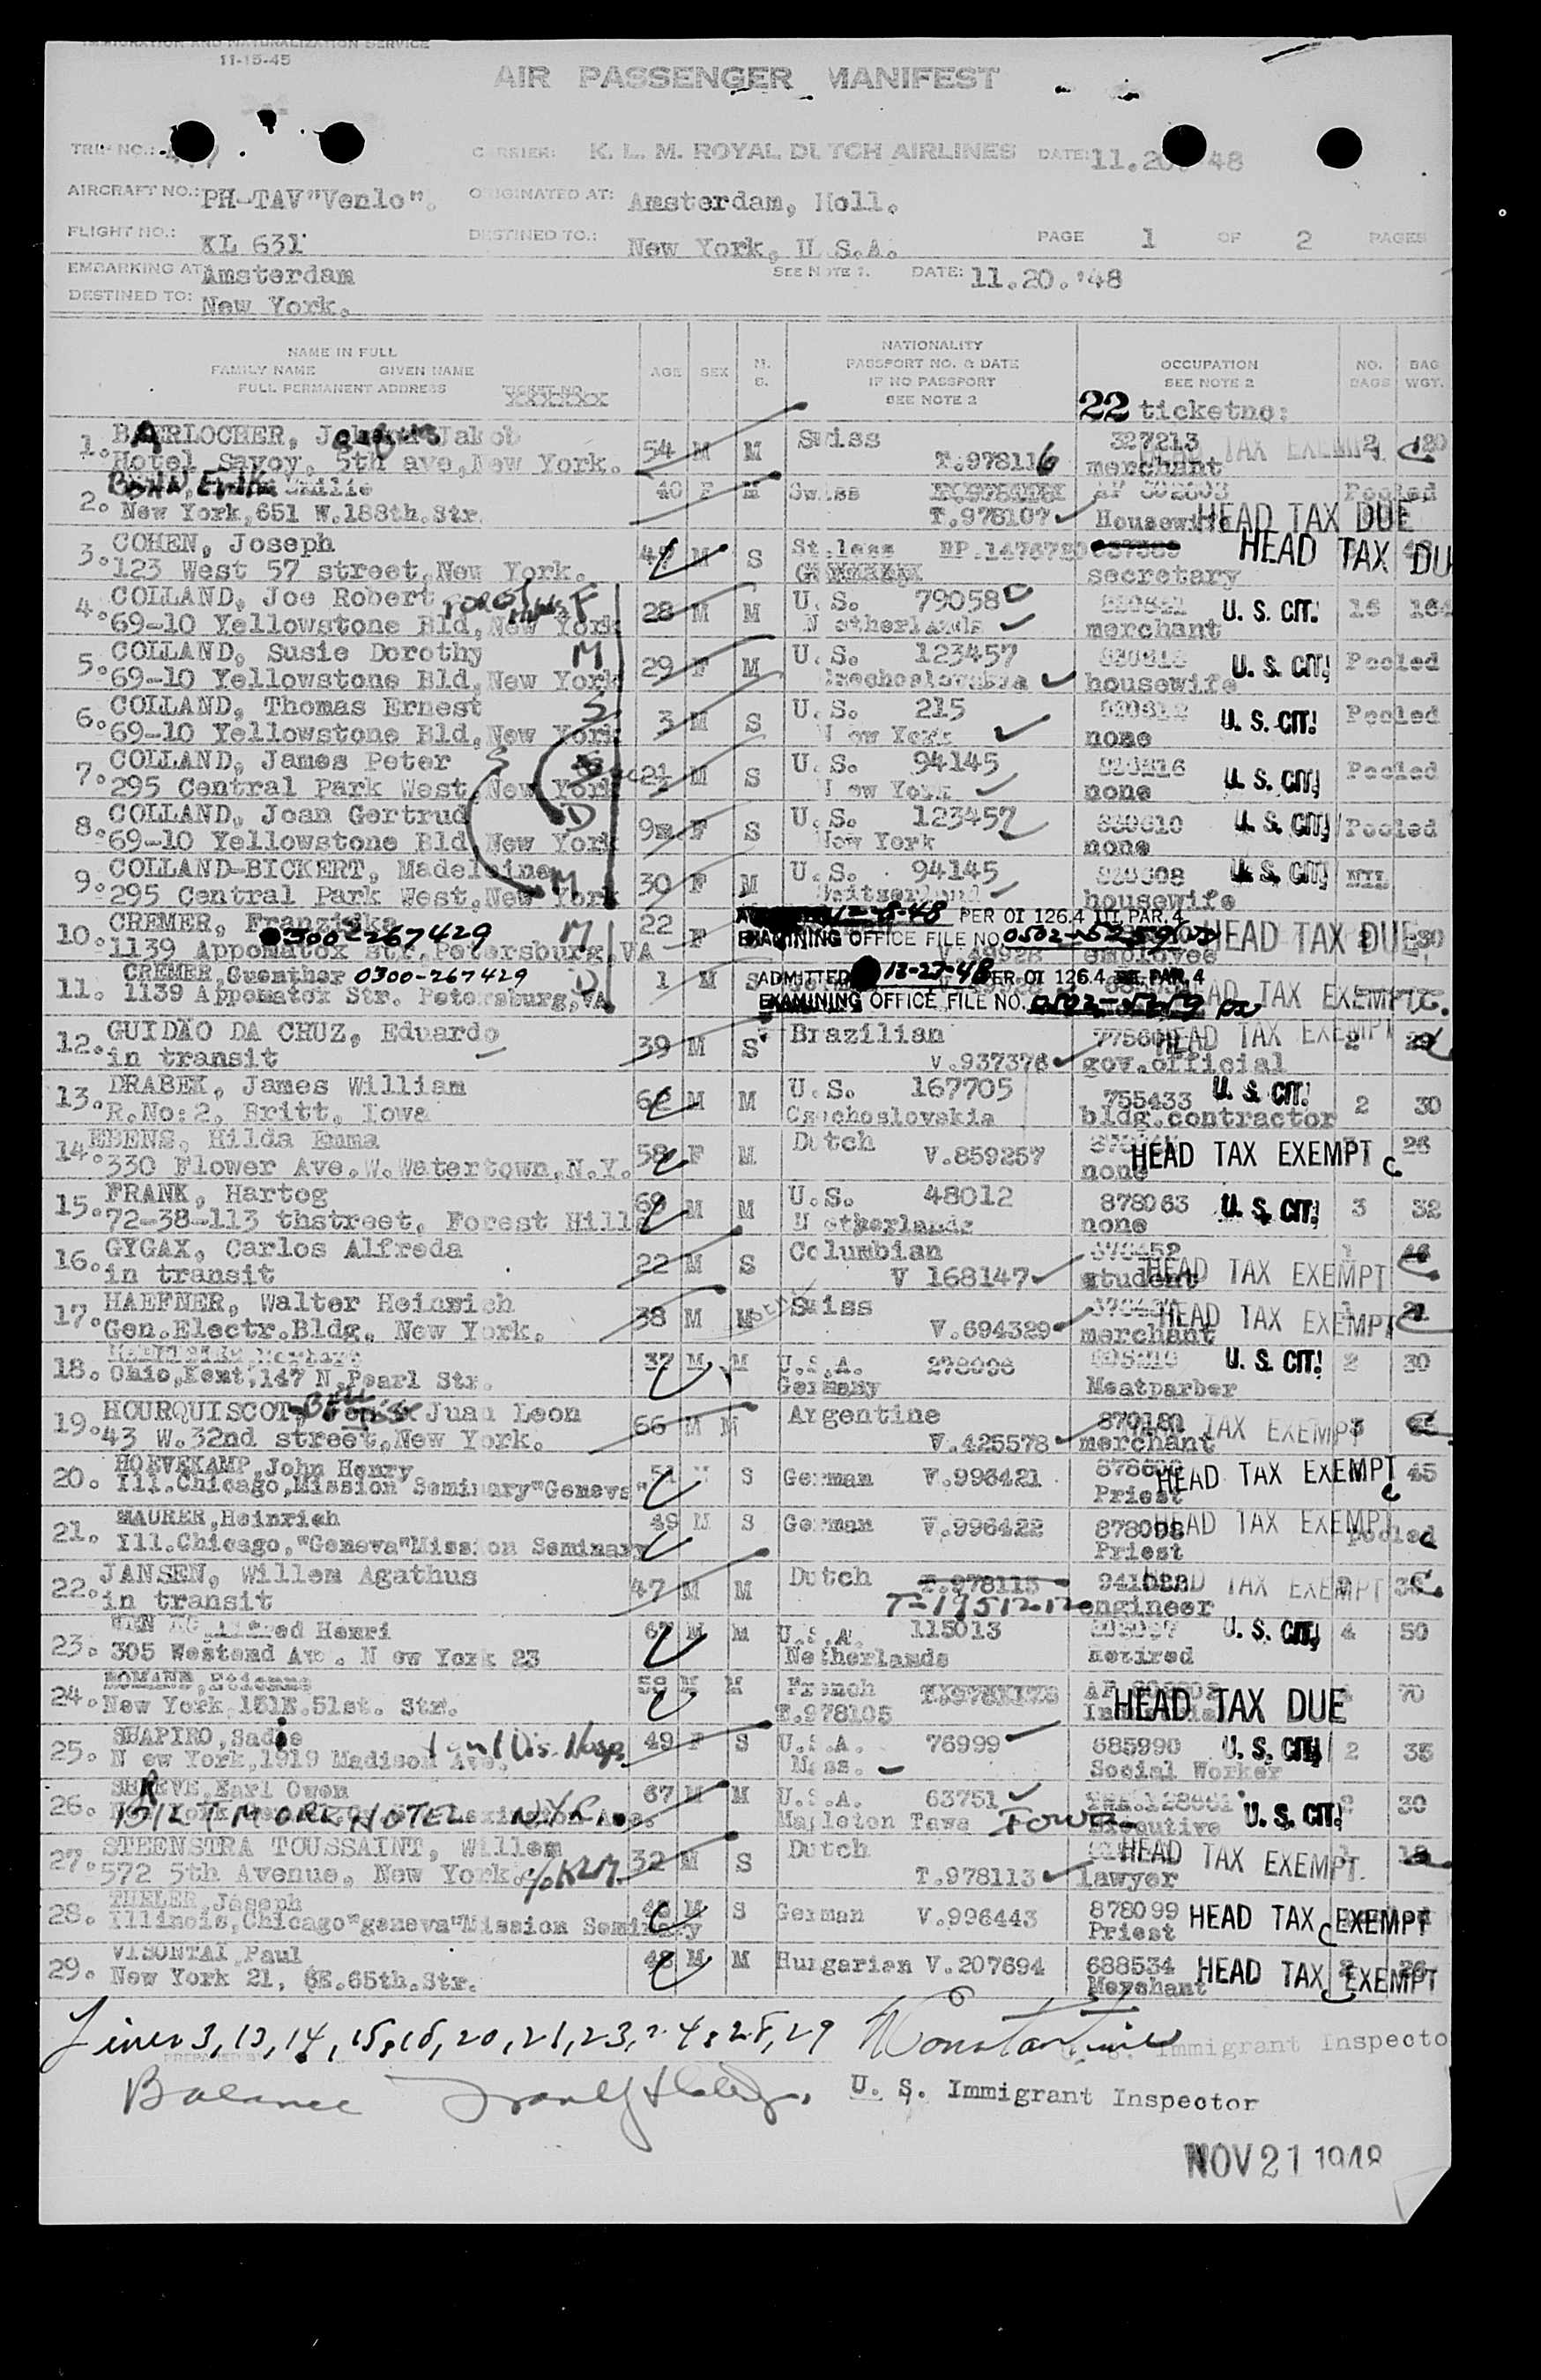 IMMIGRATION AND NATURALIZATION SERVICE
11-15-45
AIR PASSENGER MANIFEST
TRIP NO.:
CARRIER: K. L. M. ROYAL DUTCH AIRLINES DATE: 11.20. '48
AIRCRAFT NO.: PH-TAV"Venlo". ORIGINATED AT: Amsterdam, Holl.
FLIGHT NO.: KL 631 DESTINED TO.: New York, U.S.A. PAGE 1 OF 2 PAGES
EMBARKING AT Amsterdam SEE NOTE 1. DATE: 11.20.'48
DESTINED TO: New York.
NAME IN FULL
FAMILY NAME GIVEN NAME
FULL PERMANENT ADDRESS TICKET NO.
AGE SEX M. S.
NATIONALITY
PASSPORT NO. & DATE
IF NO PASSPORT
SEE NOTE 2
OCCUPATION
SEE NOTE 2
NO. BAGS BAG WGT.
22 ticketno:
1. BAERLOCHER, Jakob 54 M M Swiss 327213 TAX EXEMPT 2
Hotel Savoy, 5th ave,New York. T.978116 merchant
2. Emilie 40 F M Swiss AF Pooled
New York,651 W.188th.Str. T.978107 Housewife HEAD TAX DUE
3. COHEN, Joseph M S St.less HEAD TAX DU
123 West 57 street,New York. secretary
4. COLLAND, Joe Robert FOREST HILLS F 28 M M U.S. 79058 U. S. CIT. 16 164
69-10 Yellowstone Bld,New York Netherlands merchant
5. COLLAND, Susie Dorothy M 29 F M U.S. 123457 U. S. CIT. Pooled
69-10 Yellowstone Bld,New York Czechoslovakia housewife
6. COLLAND, Thomas Ernest S 3 M S U.S. 215 U. S. CIT. Pooled
69-10 Yellowstone Bld,New York New York none
7. COLLAND, James Peter S 2½ M S U.S. 94145 U. S. CIT. Pooled
295 Central Park West,New York New York none
8. COLLAND, Joan Gertrud D 9m F S U.S. 123457 U. S. CIT. Pooled
69-10 Yellowstone Bld,New York New York none
9. COLLAND-BICKERT, Madeleine M 30 F M U.S. 94145 U. S. CIT. NIL
295 Central Park West,New York Switzerland housewife
10. CREMER, Franziska M 22 F PER OI 126.4 III PAR.4
0300-267429
1139 Appomatox Str.Petersburg,VA EXAMINING OFFICE FILE NO. employee HEAD TAX DUE
11. CREMER,Guenther 0300-267429 D 1 M S ADMITTED 12-27-48 PER OI 126.4 III PAR 4
1139 Appomatox Str. Petersburg,VA EXAMINING OFFICE FILE NO. HEAD TAX EXEMPT
12. GUIDÃO DA CRUZ, Eduardo 39 M S Brazilian HEAD TAX EXEMPT 2
in transit V.937376 gov.official
13. DRABEK, James William M M U.S. 167705 755433 U. S. CIT. 2 30
R.No:2, Britt, Iowa Czechoslovakia bldg.contractor
14. EBENS, Hilda Emma 58 F M Dutch V.859257 HEAD TAX EXEMPT 26
330 Flower Ave.W.Watertown,N.Y. none
15. FRANK, Hartog 69 M M U.S. 48012 878063 U. S. CIT. 3 32
72-38-113 thstreet, Forest Hills Netherlands none
16. GYGAX, Carlos Alfreda 22 M S Columbian HEAD TAX EXEMPT 1
in transit V 168147 student
17. HAEFNER, Walter Heinrich 38 M M Swiss HEAD TAX EXEMPT 1 21
Gen.Electr.Bldg, New York. V.694329 merchant
18. 37 M M U.S.A. U. S. CIT. 2 30
Ohio,Kent,147 N.Pearl Str. Germany
19. HOURQUISCOT, Juan Leon 66 M M Argentine TAX EXEMPT 3
43 W.32nd street,New York. V.425578 merchant
20. HOEVEKAMP,John Henry 51 S German V.996421 HEAD TAX EXEMPT 45
Ill.Chicago,Mission Seminary"Geneva" Priest
21. MAURER,Heinrich 49 M S German V.996422 878098 HEAD TAX EXEMPT
Ill.Chicago,"Geneva"Mission Seminary Priest Pooled
22. JANSEN, Willem Agathus 47 M M Dutch T.978115 HEAD TAX EXEMPT
in transit engineer
23. Henri 67 M M U.S.A. 115013 U. S. CIT. 4 50
305 Westend Ave. New York 23 Netherlands Retired
24. Etienne 59 M M French HEAD TAX DUE 70
New York,151E.51st. Str. T.978105
25. SHAPIRO,Sadie 49 F S U.S.A. 76999 685990 U. S. CIT. 2 35
New York,1919 Madison Ave. Mass. Social Worker
26. SHREVE,Earl Owen 67 M M U.S.A. 63751 U. S. CIT. 30
BILTMORE HOTEL NYC Mapleton Iowa IOWA Executive
27. STEENSTRA TOUSSAINT, Willem 32 M S Dutch HEAD TAX EXEMPT.
572 5th Avenue, New York. c/o KLM. T.978113 lawyer
28. THELER,Joseph M S German V.996443 878099 HEAD TAX EXEMPT
Illinois,Chicago"geneva"Mission Seminary Priest
29. VISONTAI,Paul 48 M M Hungarian V.207694 688534 HEAD TAX EXEMPT
New York 21, 6E.65th.Str. Merchant
Lines 3, 13, 14, 15, 18, 20, 21, 23, 24, 28, 29
U. S. Immigrant Inspector
Balance
U. S. Immigrant Inspector
NOV 21 1948